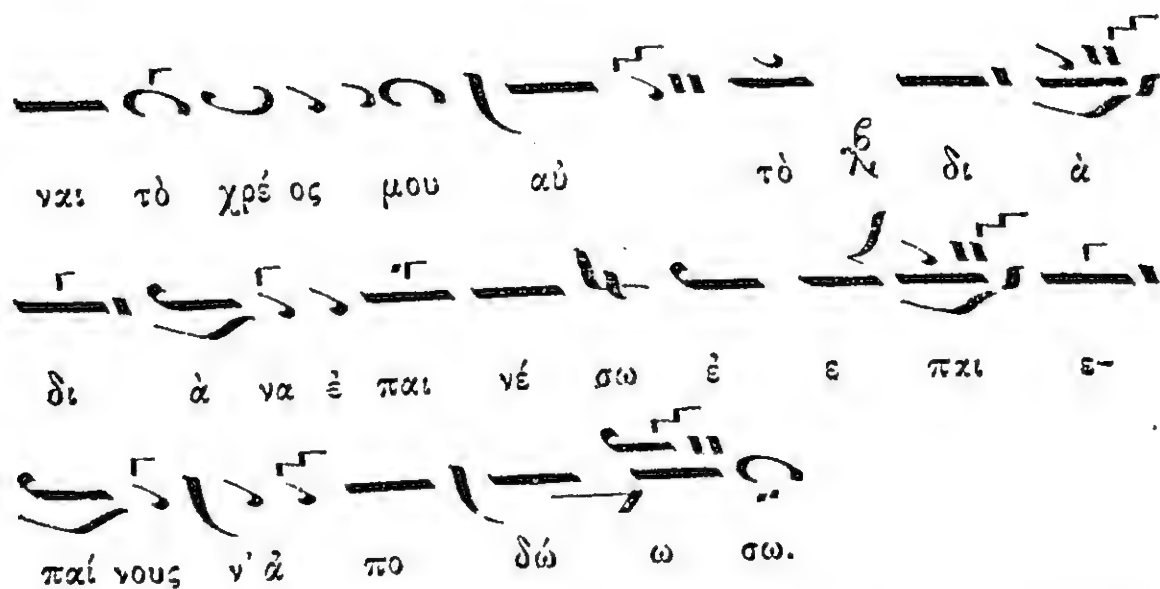 ναι τὸ χρέ ος μου αὐ τὸ δι ὰ
δι ὰ να ἐ παι νέ σω ἐ ε παι ε-
παί νους ν' ἀ πο δώ ω σω.